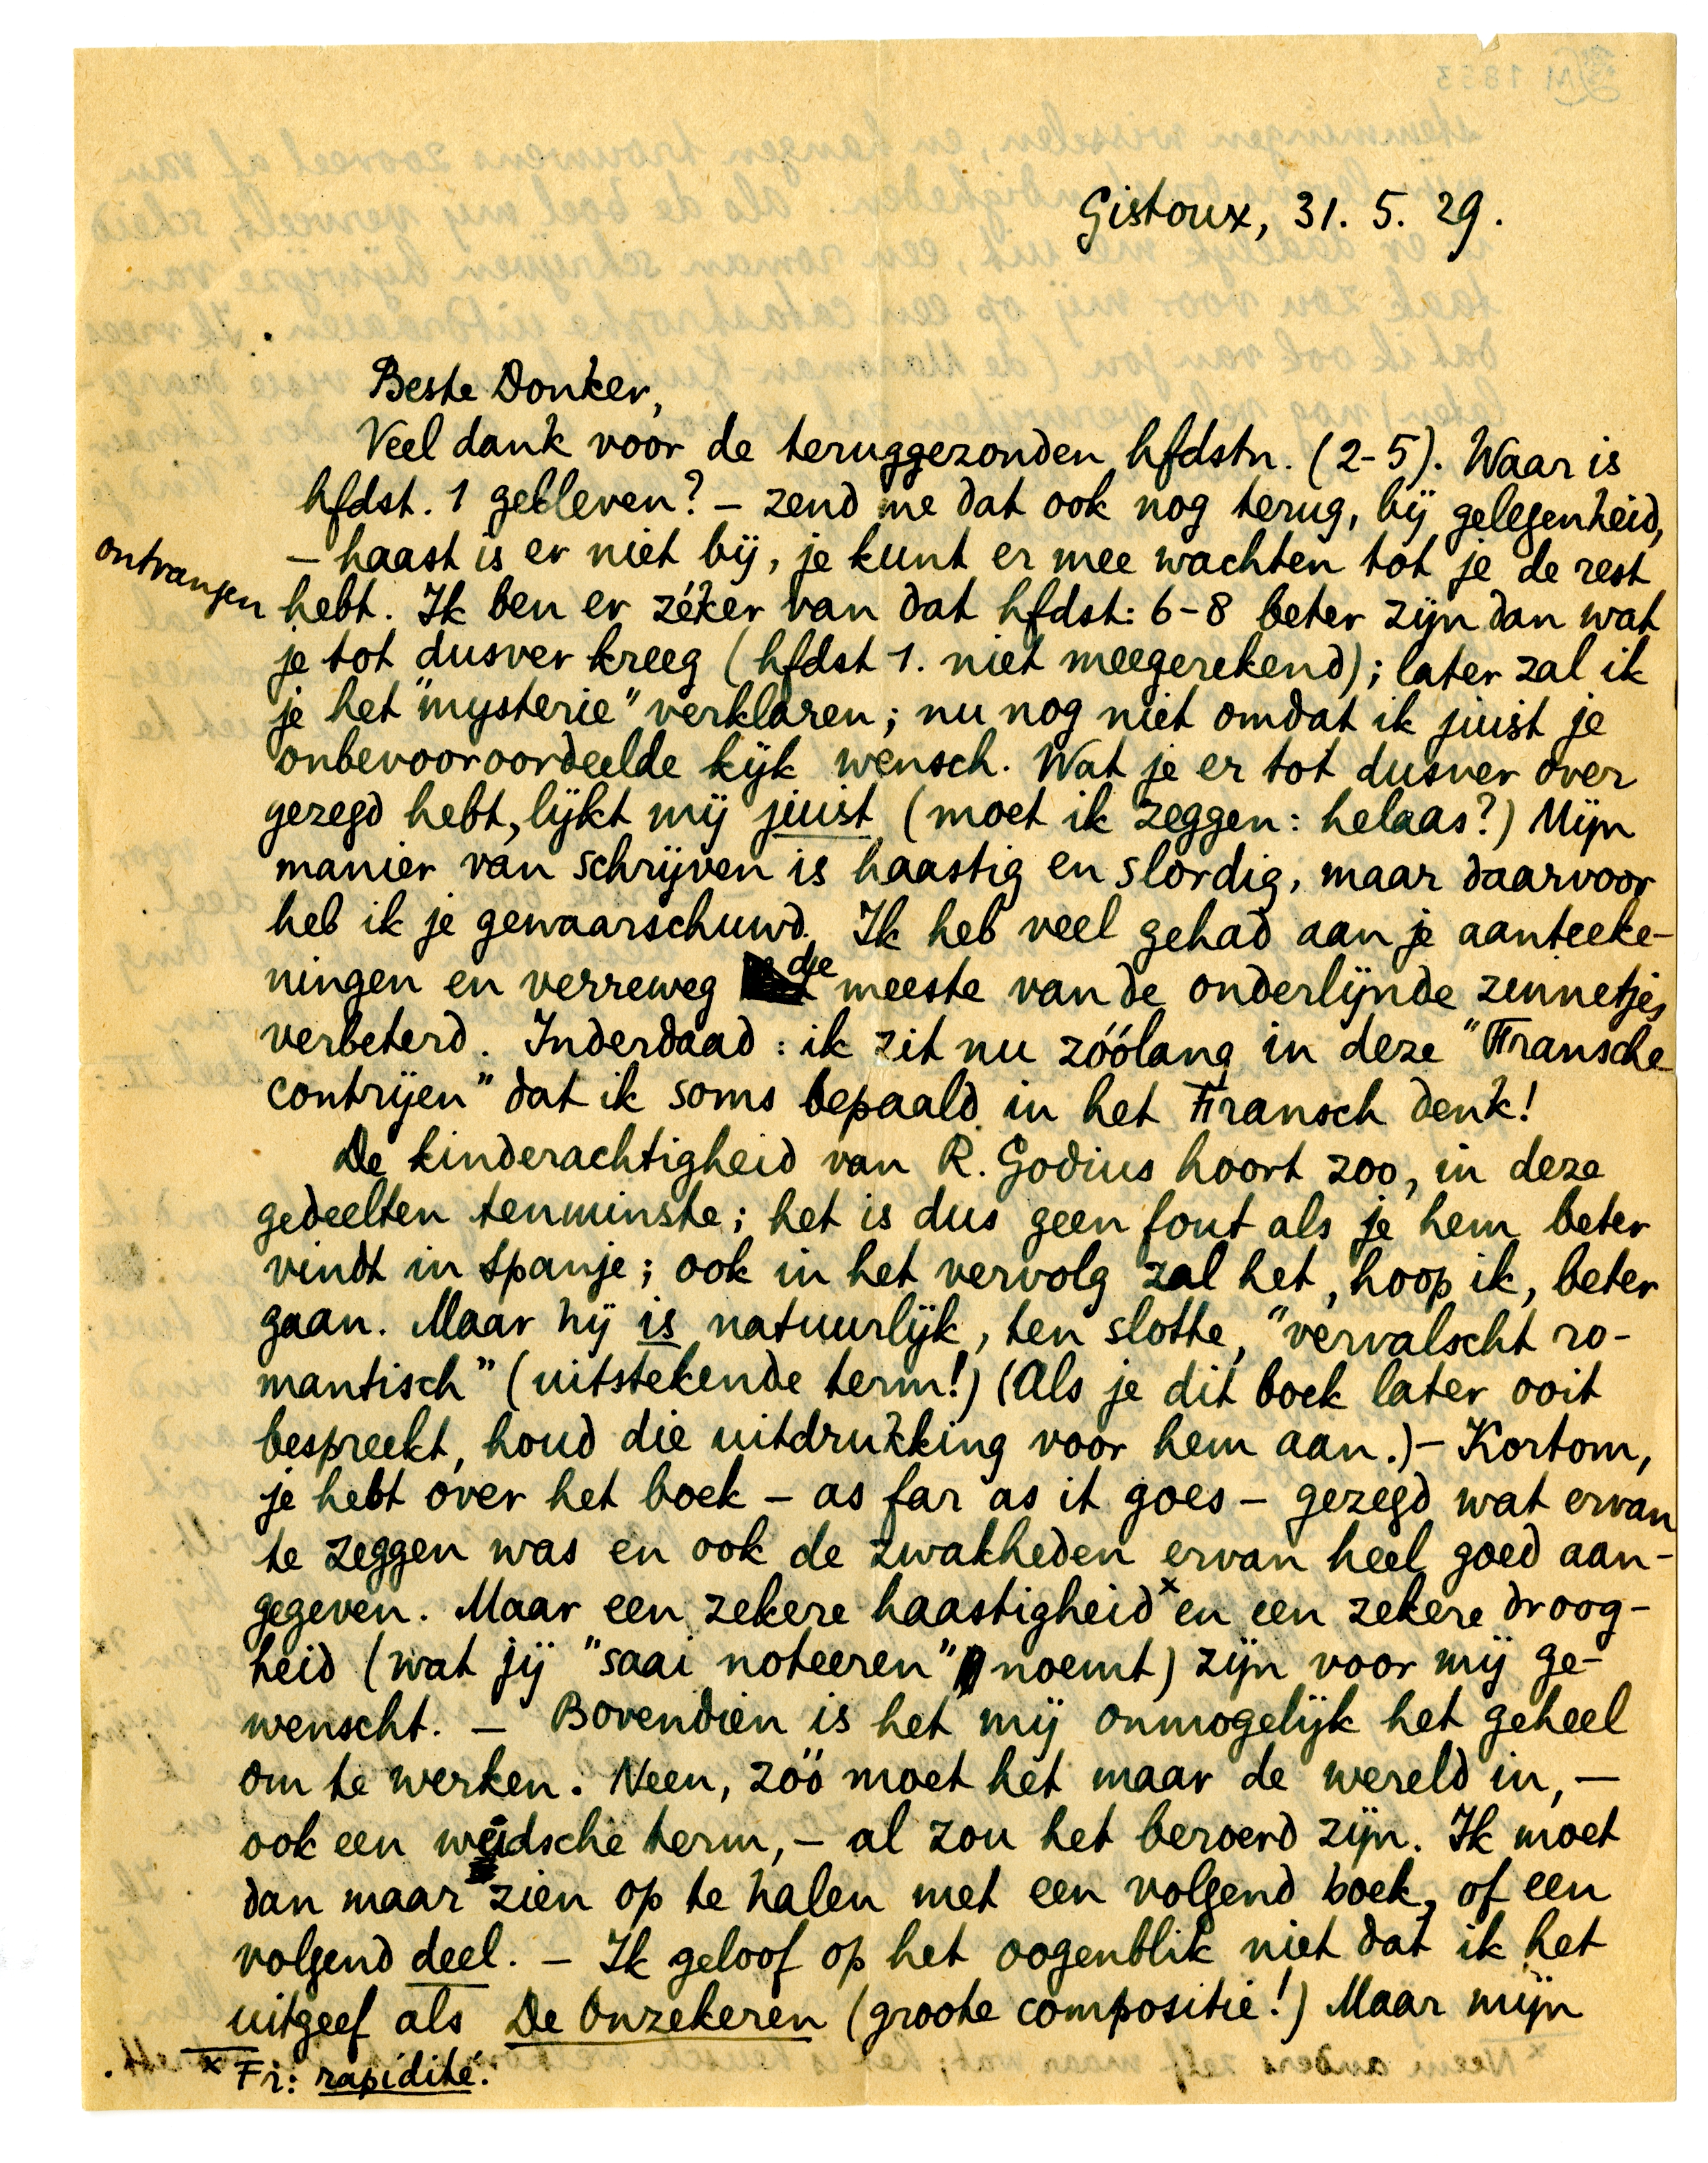 Gistoux, 31. 5. 29.
Beste Donker,
Veel dank voor de teruggezonden hfdstn. (2-5). Waar is
hfdst. 1 gebleven? – zend me dat ook nog terug, bij gelegenheid,
– haast is er niet bij, je kunt er mee wachten tot je de rest
ontvangen hebt. Ik ben er zéker van dat hfdst: 6-8 beter zijn dan wat
je tot dusver kreeg (hfdst 1. niet meegerekend); later zal ik
je het "mysterie" verklaren; nu nog niet omdat ik juist je
onbevooroordeelde kijk wensch. Wat je er tot dusver over
gezegd hebt, lijkt mij juist (moet ik zeggen: helaas?) Mijn
manier van schrijven is haastig en slordig, maar daarvoor
heb ik je gewaarschuwd. Ik heb veel gehad aan je aanteeke-
ningen en verreweg de meeste van de onderlijnde zinnetjes
verbeterd. Inderdaad: ik zit nu zóólang in deze "Fransche
contrijen" dat ik soms bepaald in het Fransch denk!
De kinderachtigheid van R. Godius hoort zoo, in deze
gedeelten tenminste; het is dus geen fout als je hem beter
vindt in Spanje; ook in het vervolg zal het, hoop ik, beter
gaan. Maar hij is natuurlijk, ten slotte, "vervalscht ro-
mantisch" (uitstekende term!) (Als je dit boek later ooit
bespreekt, houd die uitdrukking voor hem aan.) – Kortom,
je hebt over het boek – as far as it goes – gezegd wat ervan
te zeggen was en ook de zwakheden ervan heel goed aan-
gegeven. Maar een zekere haastigheid x en een zekere droog-
heid (wat jij "saai noteeren" noemt) zijn voor mij ge-
wenscht. – Bovendien is het mij onmogelijk het geheel
om te werken. Neen, zóó moet het maar de wereld in, –
ook een weidsche term, – al zou het beroerd zijn. Ik moet
dan maar zien op te halen met een volgend boek, of een
volgend deel. – Ik geloof op het oogenblik niet dat ik het
uitgeef als De Onzekeren (groote compositie!) Maar mijn
x Fr: rapidité.